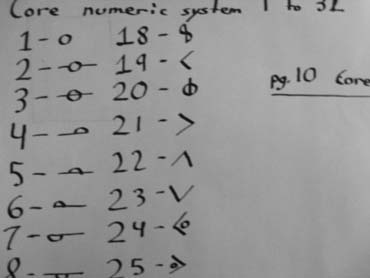 Core numeric system 1 to 32
1 - o 18 - 8
2 - 19 - <
3 - 20 - ɸ
4 - 21 - >
5 - 22 - ʌ
6 - 23 - v
7 - 24 -
8 - 25 -
pg. 10 Core